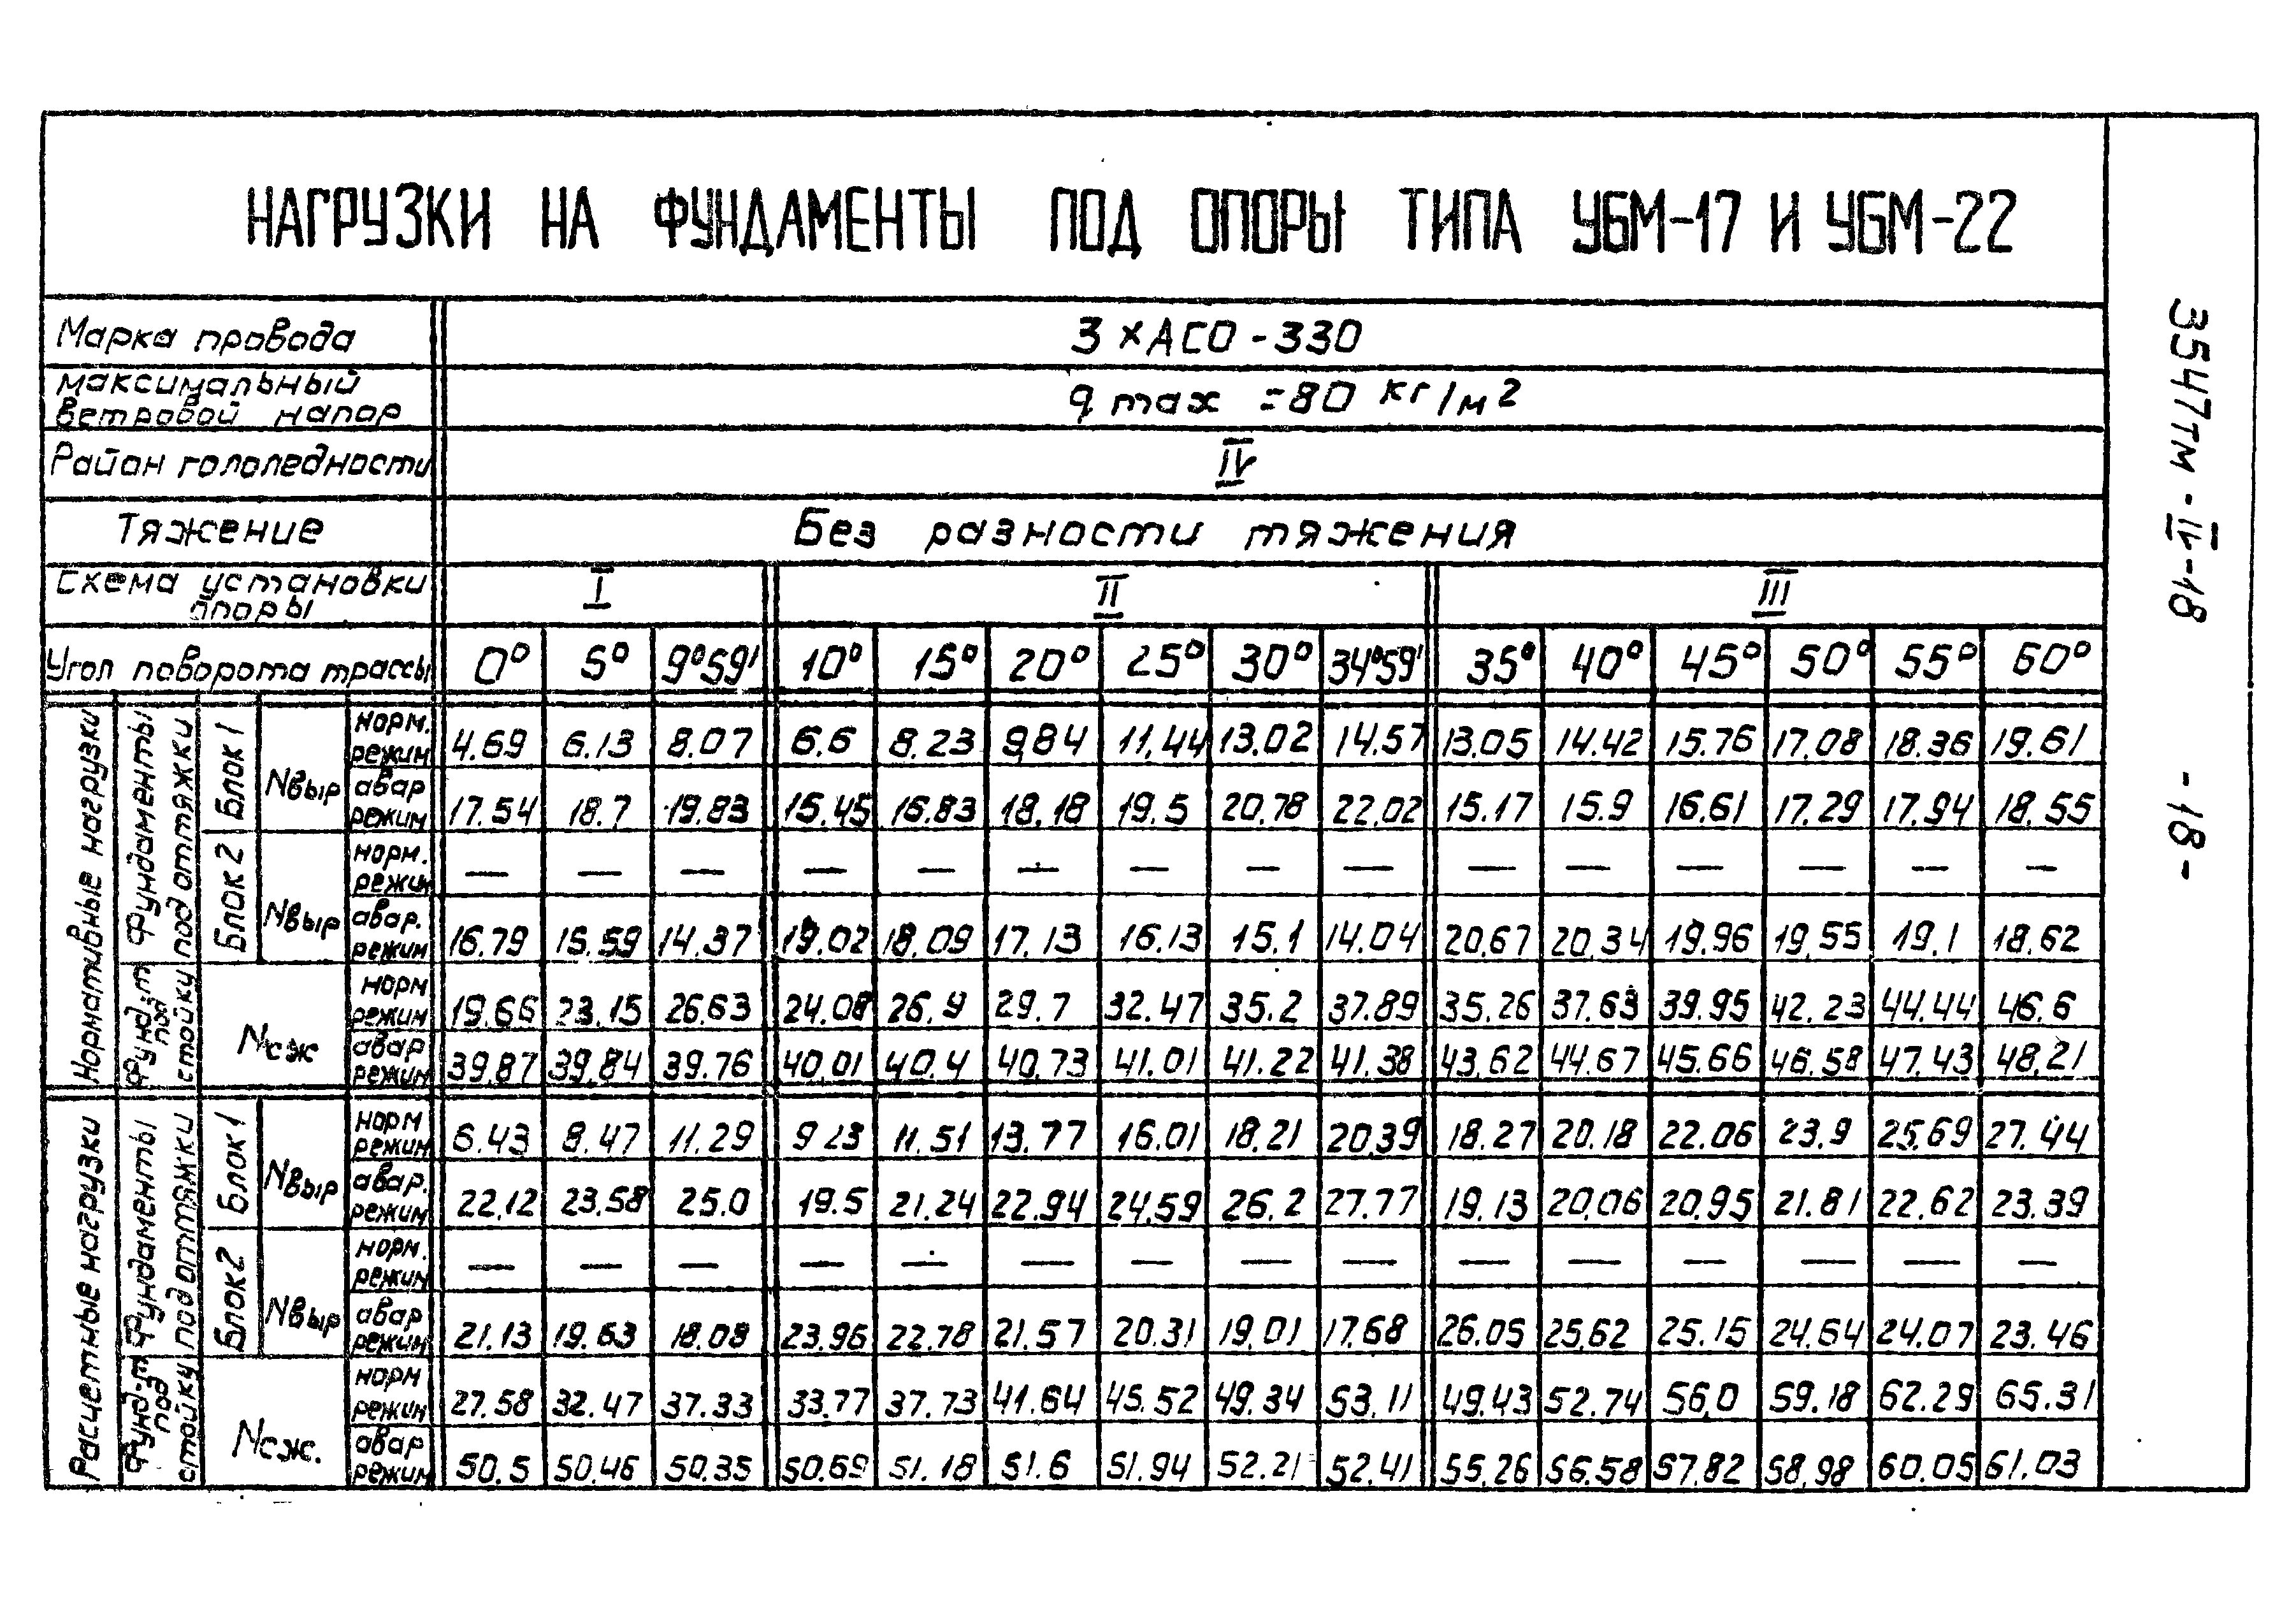 НАГРУЗКИ НА ФУНДАМЕНТЫ ПОД ОПОРЫ ТИПА УБМ-17 И УБМ-22
Марка провода 3×АСО-330
Максимальный ветровой напор q max =80 кг/м²
Район гололедности IV
Тяжение Без разности тяжения
Схема установки опоры I II III
Угол поворота трассы 0° 5° 9°59' 10° 15° 20° 25° 30° 34°59' 35° 40° 45° 50° 55° 60°
Нормативные нагрузки
Фундаменты под оттяжки
Блок 1 Nвыр
норм. режим 4.69 6.13 8.07 6.6 8.23 9,84 11,44 13.02 14.57 13.05 14.42 15.76 17.08 18.36 19.61
авар режим 17.54 18.7 19.83 15.45 16.83 18,18 19.5 20.78 22,02 15.17 15.9 16.61 17.29 17.94 18,55
Блок 2 Nвыр
норм. режим — — — — — — — — — — — — — — —
авар. режим 16.79 15.59 14.37 19.02 18.09 17.13 16.13 15.1 14.04 20,67 20,34 19.96 19,55 19.1 18,62
Фунд-т под стойку
Nсж
норм режим 19.66 23.15 26.63 24.08 26.9 29.7 32.47 35.2 37.89 35.26 37.63 39.95 42.23 44.44 46.6
авар режим 39.87 39,84 39.76 40,01 40.4 40,73 41.01 41.22 41.38 43,62 44.67 45.66 46.58 47.43 48,21
Расцетные нагрузки
Фундаменты под оттяжки
Блок 1 Nвыр
норм режим 6.43 8.47 11.29 9 23 11.51 13.77 16.01 18.21 20,39 18.27 20.18 22.06 23.9 25.69 27.44
авар. режим 22.12 23.58 25.0 19.5 21.24 22.94 24,59 26.2 27.77 19.13 20,06 20,95 21.81 22.62 23.39
Блок 2 Nвыр
норм. режим — — — — — — — — — — — — — — —
авар режим 21.13 19.63 18.08 23.96 22.78 21.57 20.31 19,01 17.68 26.05 25,62 25.15 24.64 24.07 23.46
Фунд-т под стойку
Nсж.
норм режим 27.58 32.47 37.33 33.77 37.73 41.64 45.52 49.34 53,11 49.43 52.74 56,0 59.18 62.29 65.31
авар режим 50.5 50.46 50.35 50.69 51.18 51.6 51.94 52.21 52,41 55,26 56.58 57.82 58,98 60.05 61.03
3547тм-IV-18
-18-